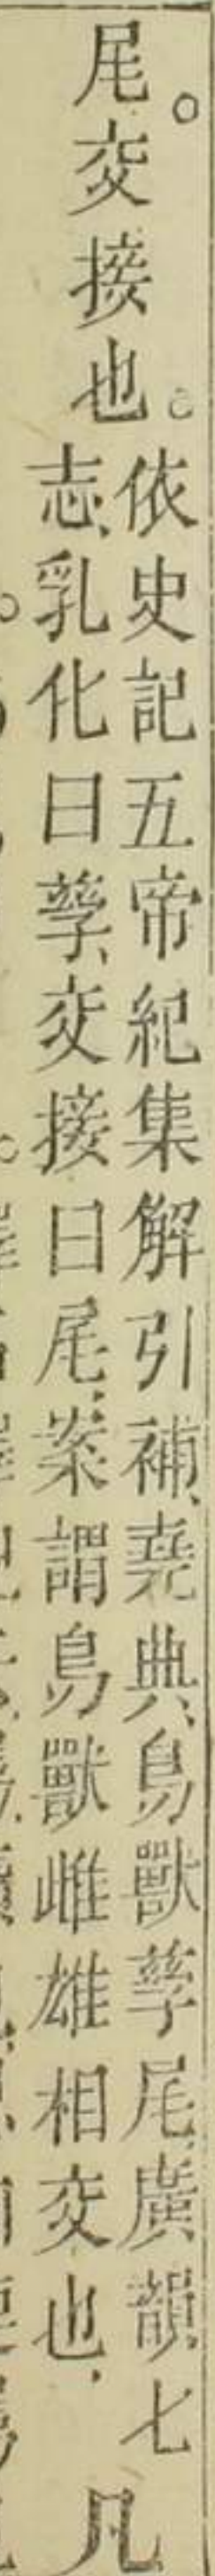 尾交接也。
依史記五帝紀集解引補、堯典、鳥獸孳尾、廣韻、七
志、乳化曰孳、交接曰尾、案謂鳥獸雌雄相交也、
凡